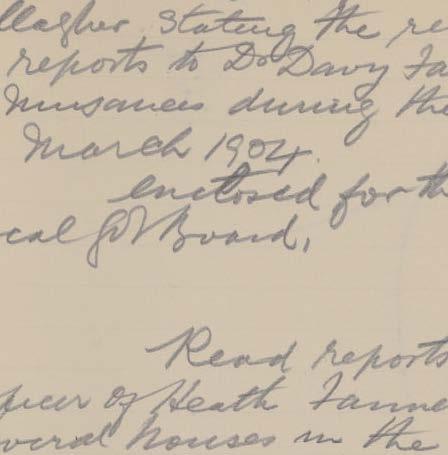 llagher, Stating the re
reports to Dr Davy Fa
Nuisances during the
March 1904.
enclosed for th
cal Govt Board,
Read reports
ficer of Heath Fanne
veral houses in the